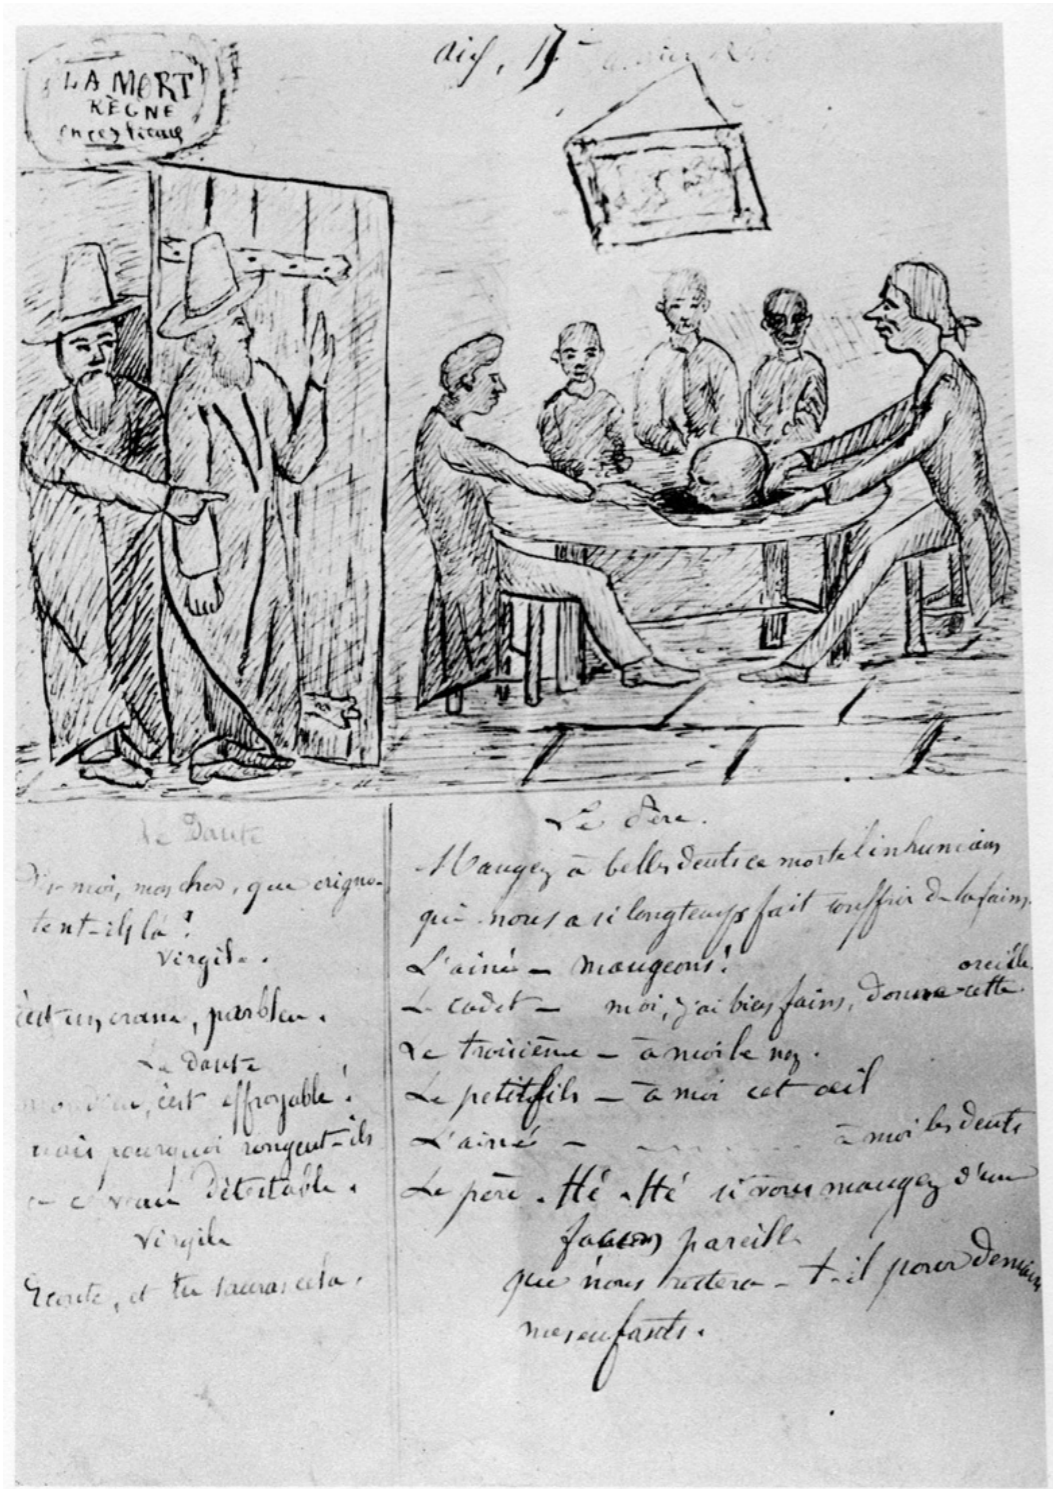 LA MORT
RÈGNE
en ces lieux
Aix, 17
Le Dante
Dis-moi, mon cher, que grigno-
tent-ils là ?
Virgile.
C'est un crane, parbleu.
Le Dante
mon dieu, c'est effroyable !
mais pourquoi rongent-ils
ce cerveau détestable.
Virgile
Ecoute, et tu sauras cela.
Le Père.
Mangez à belles dents ce mortel inhumain
qui nous a si longtemps fait souffrir de la faim.
L'ainé – mangeons !
oreille.
Le cadet – moi, j'ai bien faim, donne cette
Le troisième – à moi le nez.
Le petit fils – à moi cet œil
L'ainé – à moi les dents
Le père . Hé . Hé si vous mangez d'une
façon pareille
que nous restera-t-il pour demain
mes enfants.